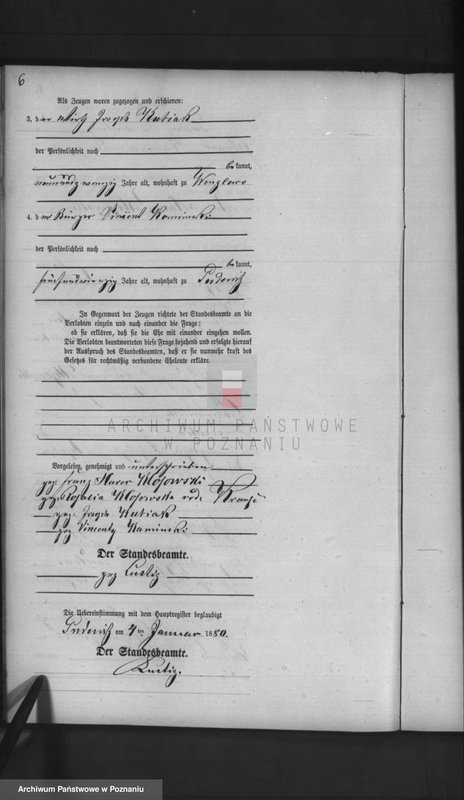 6
Als Zeugen waren zugezogen und erschienen:
3. der Wirth Joseph Kubiak
der Persönlichkeit nach
be kannt,
neunundzwanzig Jahre alt, wohnhaft zu
4. der Bürger Vincent Kaminski
der Persönlichkeit nach
be kannt,
fünfundvierzig Jahre alt, wohnhaft zu Pudewitz
In Gegenwart der Zeugen richtete der Standesbeamte an die
Verlobten einzeln und nach einander die Frage:
ob sie erklären, daß sie die Ehe mit einander eingehen wollen.
Die Verlobten beantworteten diese Frage bejahend und erfolgte hierauf
der Ausspruch des Standesbeamten, daß er sie nunmehr kraft des
Gesetzes für rechtmäßig verbundene Eheleute erkläre.
ARCHIWUM PAŃSTWOWE
W POZNANIU
Vorgelesen, genehmigt und unterschrieben
gez. Franz Xaver Kłosowski
gez. Rosalia Kłosowska
gez. Joseph Kubiak
gez. Vincenty Kaminski
Der Standesbeamte.
gez. Lustig
Die Uebereinstimmung mit dem Hauptregister beglaubigt
Pudewitz am 4ten Januar 1880.
Der Standesbeamte.
Lustig.
Archiwum Państwowe w Poznaniu